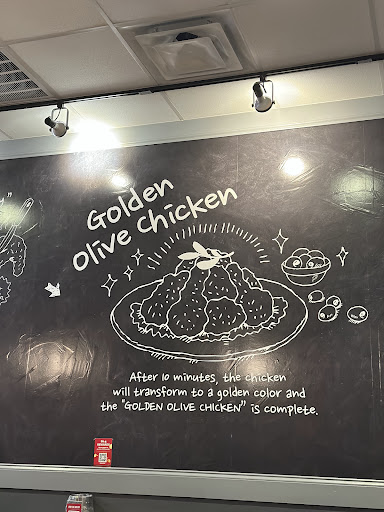 Golden
Olive Chicken
After 10 minutes, the chicken
will transform to a golden color and
the "GOLDEN OLIVE CHICKEN" is complete.